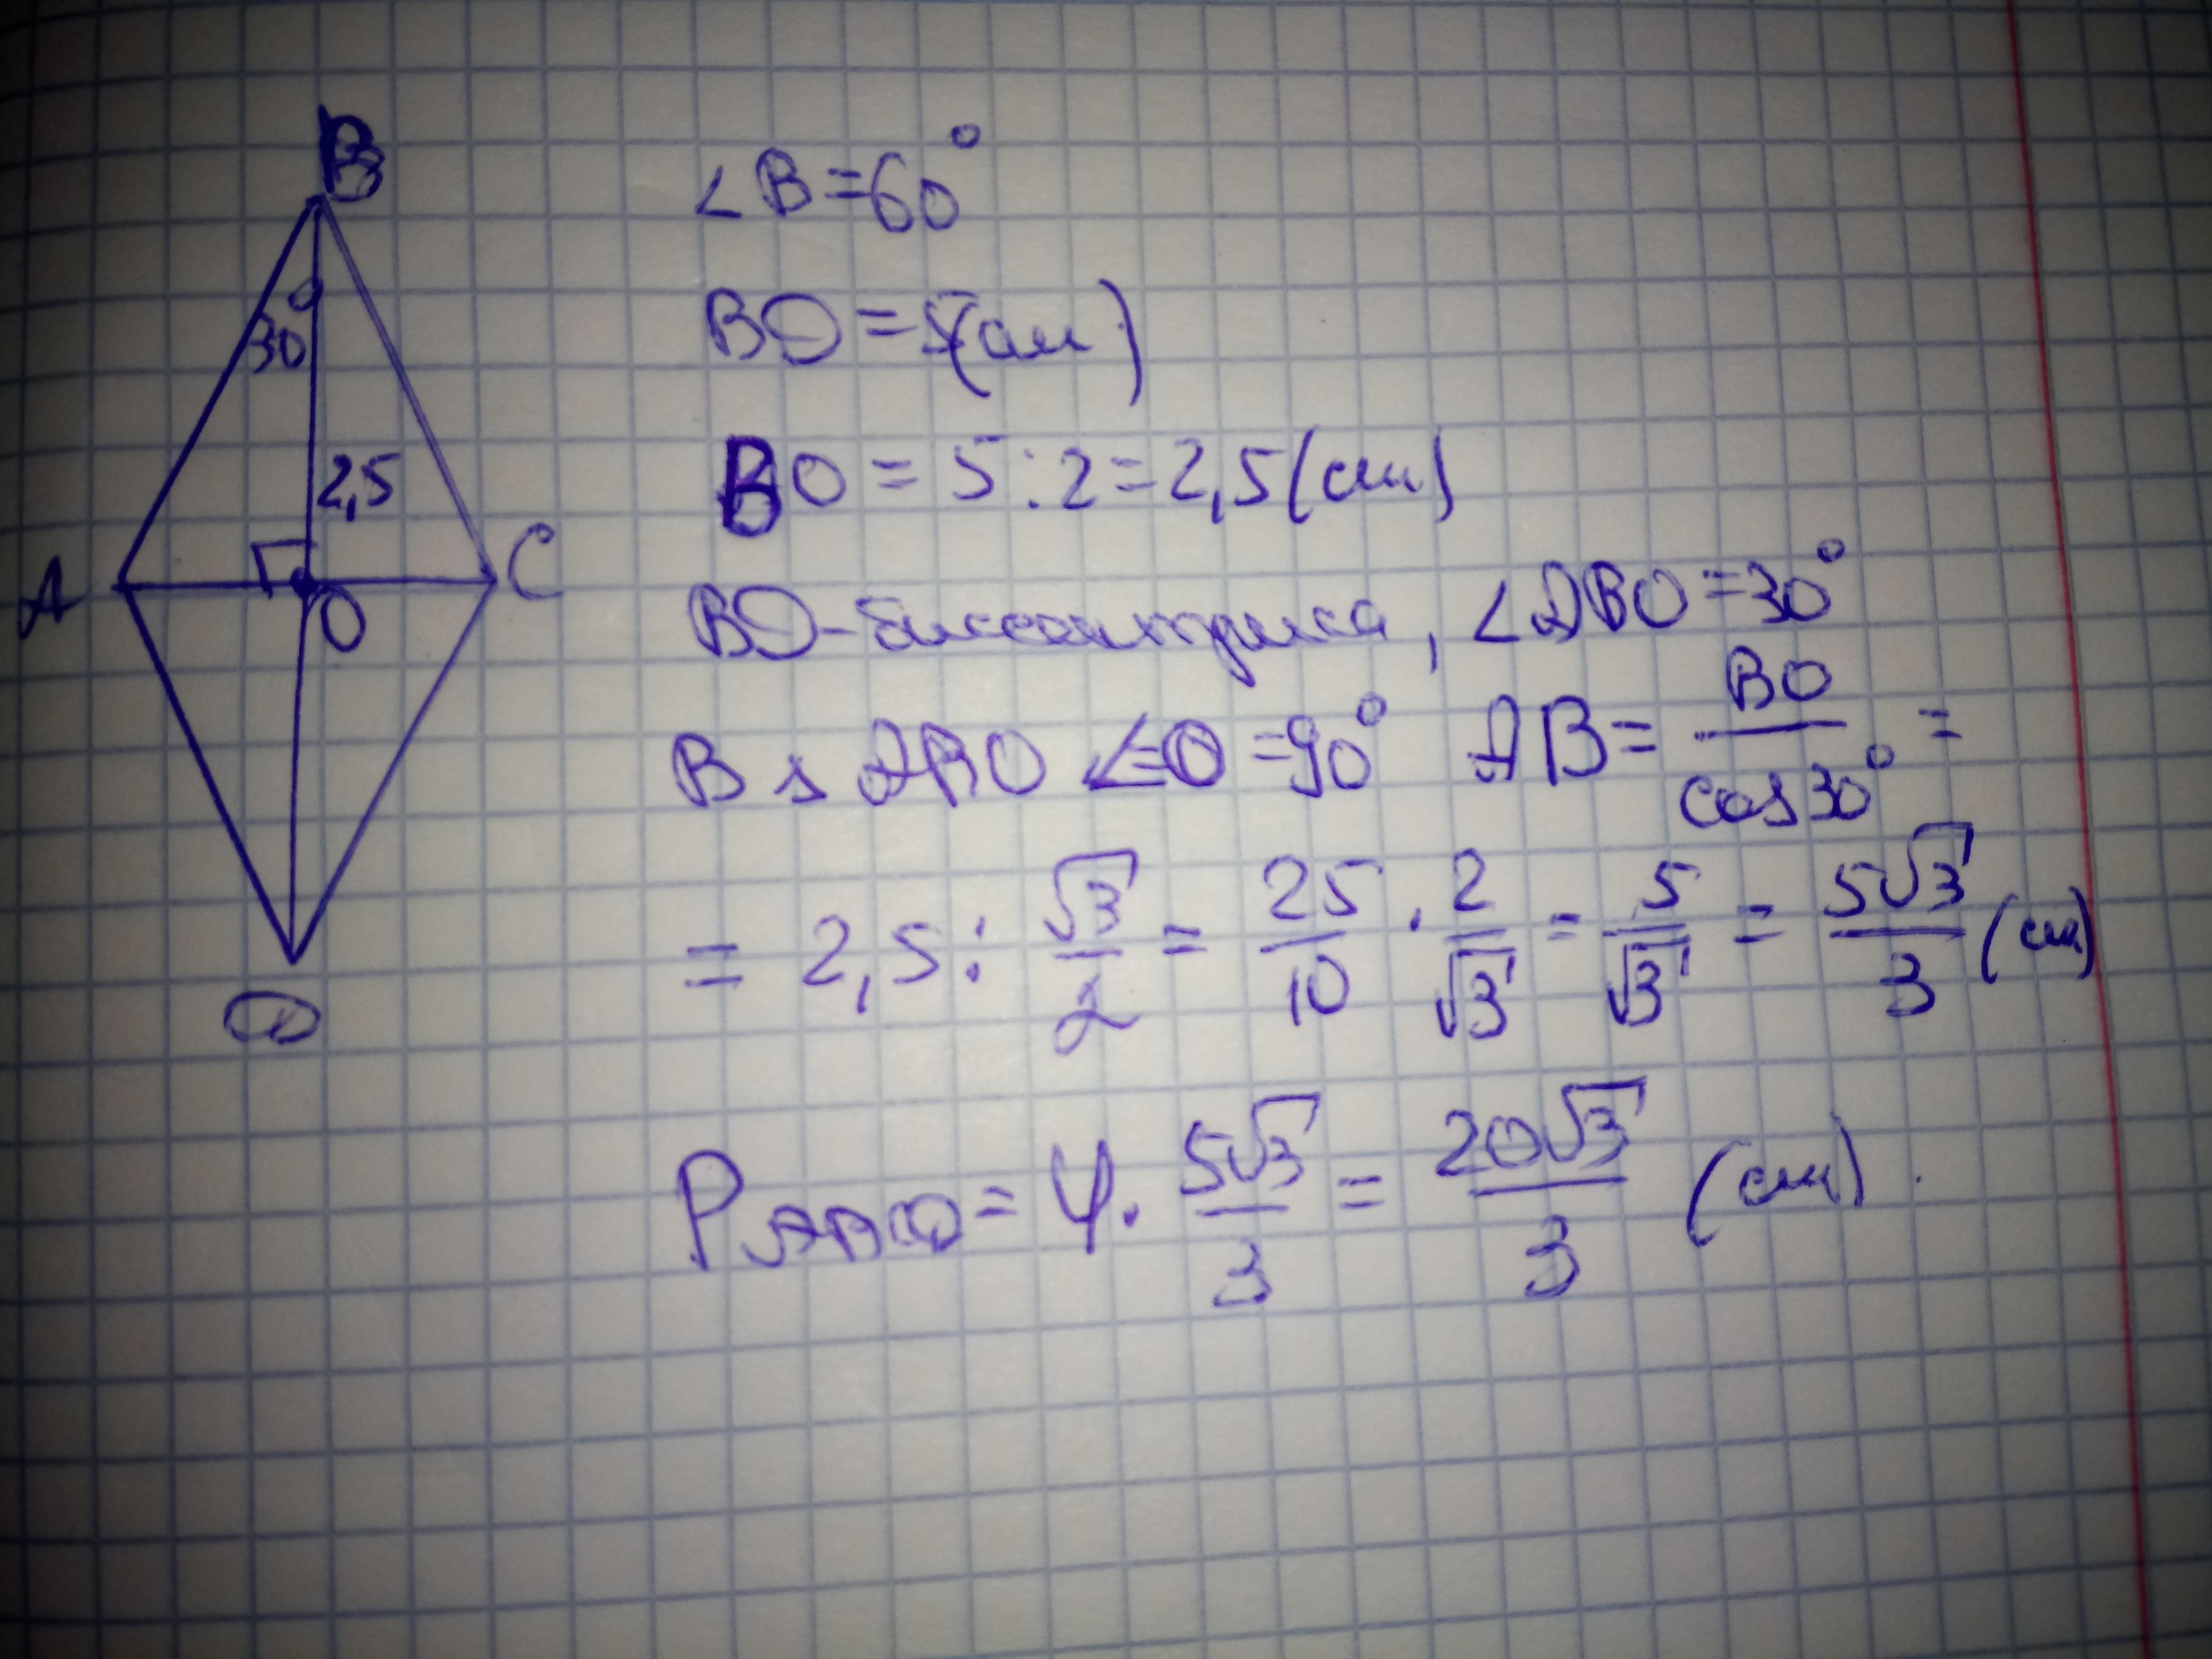 B
30°
2,5
A
C
O
D
∠B=60°
BD=5(см)
BO=5:2=2,5(см)
BD-биссектриса, ∠ABO=30°
В △ ABO ∠O=90° AB= BO/cos30° =
= 2,5: √3/2 = 25/10 · 2/√3 = 5/√3 = 5√3/3 (см)
P = 4· 5√3/3 = 20√3/3 (см).